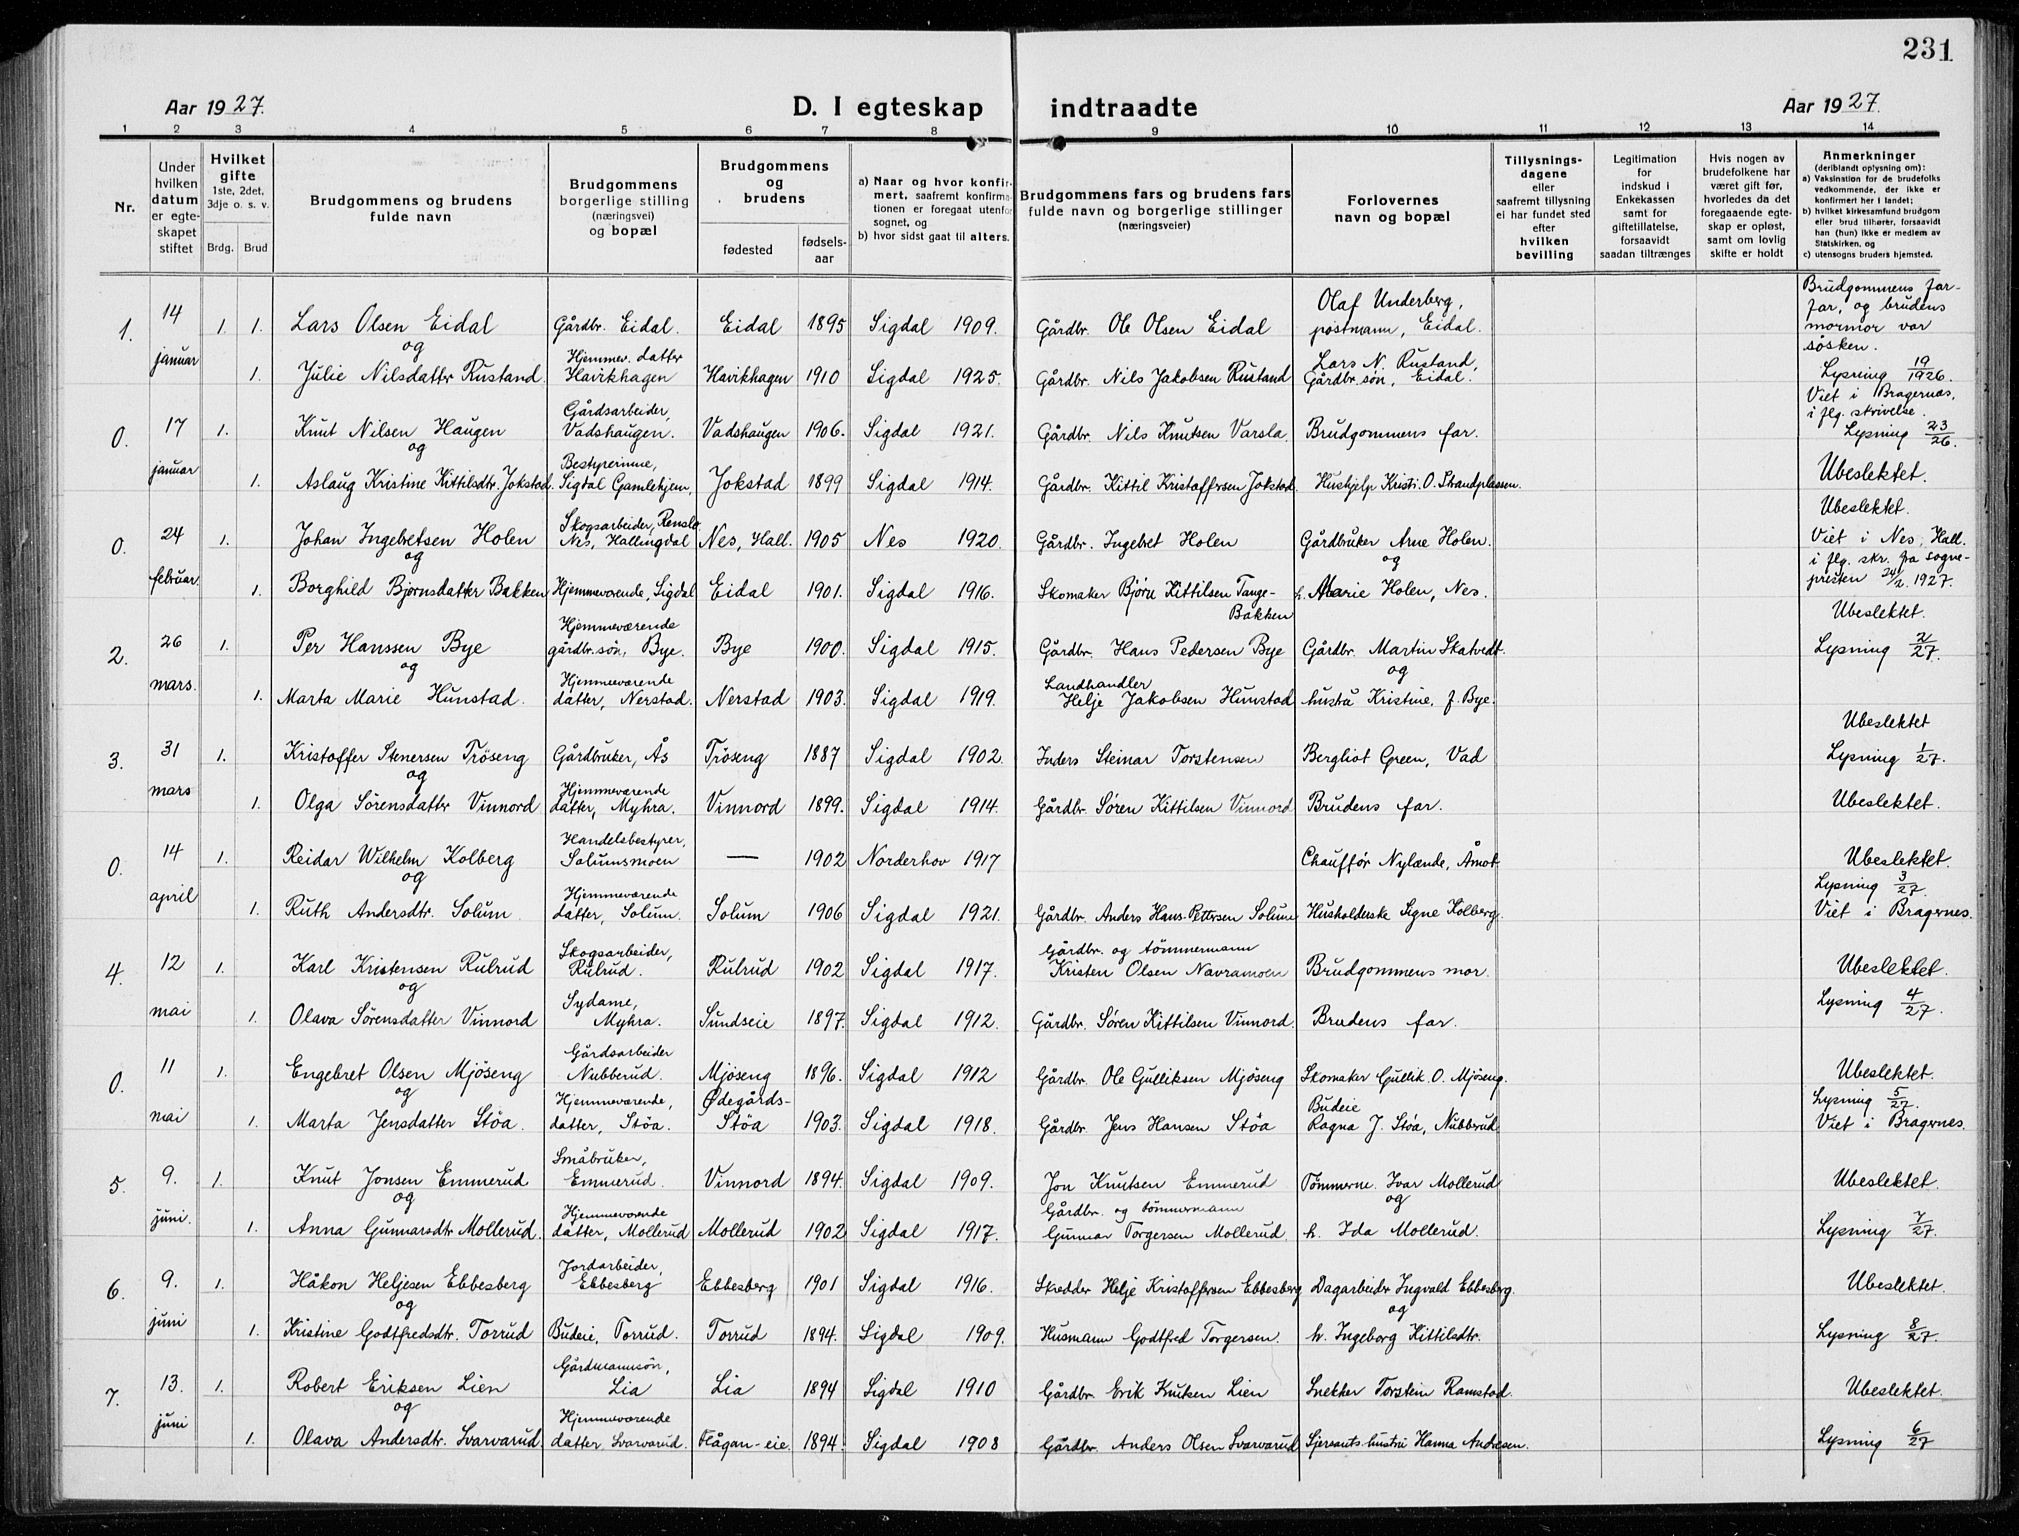 231
Aar 1927.
D. I egteskap indtraadte
Aar 1927.
1 2 3 4 5 6 7 8 9 10 11 12 13 14
Nr.
Under hvilken datum er egteskapet stiftet
Hvilket gifte
1ste, 2det, 3dje o. s. v.
Brdg. Brud
Brudgommens og brudens fulde navn
Brudgommens borgerlige stilling (næringsvei) og bopæl
Brudgommens og brudens
fødested fødselsaar
a) Naar og hvor konfirmert, saafremt konfirmationen er foregaat utenfor sognet, og
b) hvor sidst gaat til alters.
Brudgommens fars og brudens fars fulde navn og borgerlige stillinger (næringsveier)
Forlovernes navn og bopæl
Tillysningsdagene eller saafremt tillysning ei har fundet sted efter hvilken bevilling
Legitimation for indskud i Enkekassen samt for giftetillatelse, forsaavidt saadan tiltrænges
Hvis nogen av brudefolkene har været gift før, hvorledes da det foregaaende egteskap er opløst, samt om lovlig skifte er holdt
Anmerkninger (deriblandt oplysning om):
a) Vaksination for de brudefolks vedkommende, der ikke er konfirmert her i landet;
b) hvilket kirkesamfund brudgom eller brud tilhører, forsaavidt han (hun) ikke er medlem av Statskirken, og
c) utensogns bruders hjemsted.
1. 14 januar 1. 1. Lars Olsen Eidal Gårdbr. Eidal. Eidal 1895 Sigdal 1909. Gårdbr. Ole Olsen Eidal Olaf Underberg, postmann, Eidal. Brudgommens farfar, og brudens mormor var søsken.
og
1. Julie Nilsdatter Rustand Hjemmev. datter Havikhagen Havikhagen 1910 Sigdal 1925. Gårdbr. Nils Jakobsen Rustand Lars N. Rustand, Gårdbr. søn, Eidal. Lysning 19/1926.
0. 17 januar 1. Knut Nilsen Haugen Gårdsarbeider, Vadshaugen. Vadshaugen 1906. Sigdal 1921. Gårdbr. Nils Knutsen Varsla Brudgommens far. Viet i Bragernæs, i flg. skrivelse. Lysning 23/26.
og
1. Aslaug Kristine Kittilsdtr. Jokstad. Bestyrerinne, Sigdal Gamlehjem, Jokstad 1899 Sigdal 1914. Gårdbr. Kittil Kristoffersen Jokstad. Hushjelp Kristi. O. Strandplassen. Ubeslektet.
0. 24 februar. 1. Johan Ingebretsen Holen Skogsarbeider, Renslo Nes, Hallingdal Nes, Hall. 1905 Nes 1920. Gårdbr. Ingebret Holen Gårdbruker Arne Holen. Ubeslektet. Viet i Nes, Hall.
og og
1. Borghild Bjørnsdatter Bakken Hjemmeværende, Sigdal Eidal 1901. Sigdal 1916. Skomaker Bjørn Kittilsen Tange-Bakken h. Marie Holen, Nes. i flg. skr. fra sognepresten 24/2. 1927.
2. 26 mars. 1. Per Hanssen Bye Hjemmeværende gårdbr. søn, Bye. Bye 1900. Sigdal 1915. Gårdbr. Hans Pedersen Bye Gårdbr. Martin Skatvedt. Ubeslektet. Lysning 2/27.
og og
1. Marta Marie Hunstad. Hjemmeværende datter, Nerstad. Nerstad 1903. Sigdal 1919. Landhandler Helje Jakobsen Hunstad hustru Kristine, f. Bye.
3. 31 mars 1. Kristoffer Stenersen Trøseng Gårdbruker, Ås Trøseng 1887 Sigdal 1902. Inders Steinar Torstensen Bergliot Green, Vad Ubeslektet Lysning 1/27.
og
1. Olga Sørensdatter Vinnord Hjemmeværende datter, Myhra. Vinnord 1899. Sigdal 1914. Gårdbr. Søren Kittilsen Vinnord Brudens far. Ubeslektet.
0. 14 april 1. Reidar Wilhelm Kolberg Handelsbestyrer, Solumsmoen — 1902 Norderhov 1917 Chauffør Nylænde, Åmot. Ubeslektet.
og
1. Ruth Andersdtr. Solum. Hjemmeværende datter, Solum. Solum 1906 Sigdal 1921. Gårdbr. Anders Hans-Pettersen Solum Husholderske Signe Kolberg. Lysning 3/27. Viet i Bragernes.
4. 12 mai 1. Karl Kristensen Rulrud Skogsarbeider, Rulrud. Rulrud 1902 Sigdal 1917. Gårdbr. og tømmermann Kristen Olsen Navramoen Brudgommens mor. Ubeslektet.
og
1. Olava Sørensdatter Vinnord Sydame, Myhra. Sundseie 1897. Sigdal 1912. Gårdbr. Søren Kittilsen Vinnord. Brudens far. Lysning 4/27.
0. 11 mai 1. Engebret Olsen Mjøseng Gårdsarbeider Nubberud. Mjøseng 1896. Sigdal 1912 Gårdbr. Ole Gulliksen Mjøseng Skomaker Gullik. O. Mjøseng. Ubeslektet.
og
1. Marta Jensdatter Støa. Hjemmeværende, datter, Støa. Ødegårds-Støa 1903. Sigdal 1918. Gårdbr. Jens Hansen Støa Budeie Ragna J. Støa, Nubberud Lysning 5/27. Viet i Bragernes.
5. 9. juni. 1. Knut Jonsen Emmerud Småbruker, Emmerud. Vinnord 1894. Sigdal 1909. Jon Knutsen Emmerud Tømmerne. Ivar Mollerud Ubeslektet.
og og
1. Anna Gunnarsdtr. Mollerud. Hjemmeværende datter, Mollerud Mollerud 1902 Sigdal 1917. Gårdbr. og tømmermann Gunnar Torgersen Mollerud. h. Ida Mollerud. Lysning 7/27.
6. 9. juni 1. Håkon Heljesen Ebbesberg Jordarbeider, Ebbesberg Ebbesberg 1901 Sigdal 1916. Skredder Helje Kristoffersen Ebbesberg Dagarbeider Ingvald Ebbesberg. Ubeslektet.
og og
1. Kristine Godtfredsdtr. Torrud Budeie, Torrud. Torrud 1894. Sigdal 1909. Husmann Godtfred Torgersen. h. Ingeborg Kittilsdtr. Lysning 8/27.
7. 13. juni 1. Robert Eriksen Lien Gårdmannsøn, Lia Lia 1894 Sigdal 1910 Gårdbr. Erik Knutsen Lien Snekker Torstein Ramstad. Ubeslektet.
og
1. Olava Andersdtr. Svarvarud. Hjemmeværende datter, Svarvarud. Flågan-eie. 1894. Sigdal 1908 Gårdbr. Anders Olsen Svarvarud Sjersants-hustru Hanna Andresen. Lysning 6/27